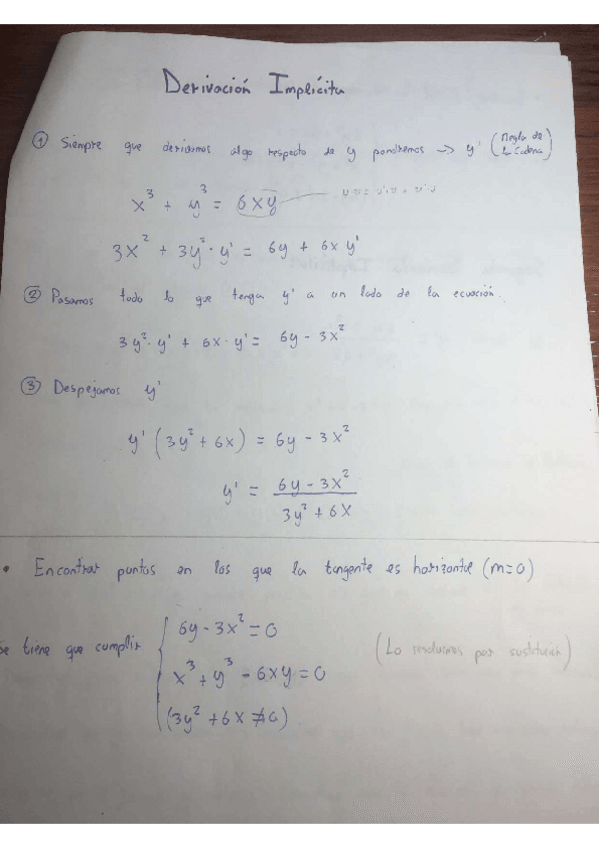 Derivación Implícita
① Siempre que derivamos algo respecto de y pondremos → y' (Regla de la Cadena)
x³ + y³ = 6xy
3x² + 3y²·y' = 6y + 6x y'
② Pasamos todo lo que tenga y' a un lado de la ecuación.
3y²·y' + 6x·y' = 6y - 3x²
③ Despejamos y'
y' (3y² + 6x) = 6y - 3x²
y' = (6y - 3x²) / (3y² + 6x)
• Encontrar puntos en los que la tangente es horizontal (m=0)
Se tiene que cumplir { 6y - 3x² = 0
x³ + y³ - 6xy = 0
(3y² + 6x ≠ 0)
(Lo resolvemos por sustitución)